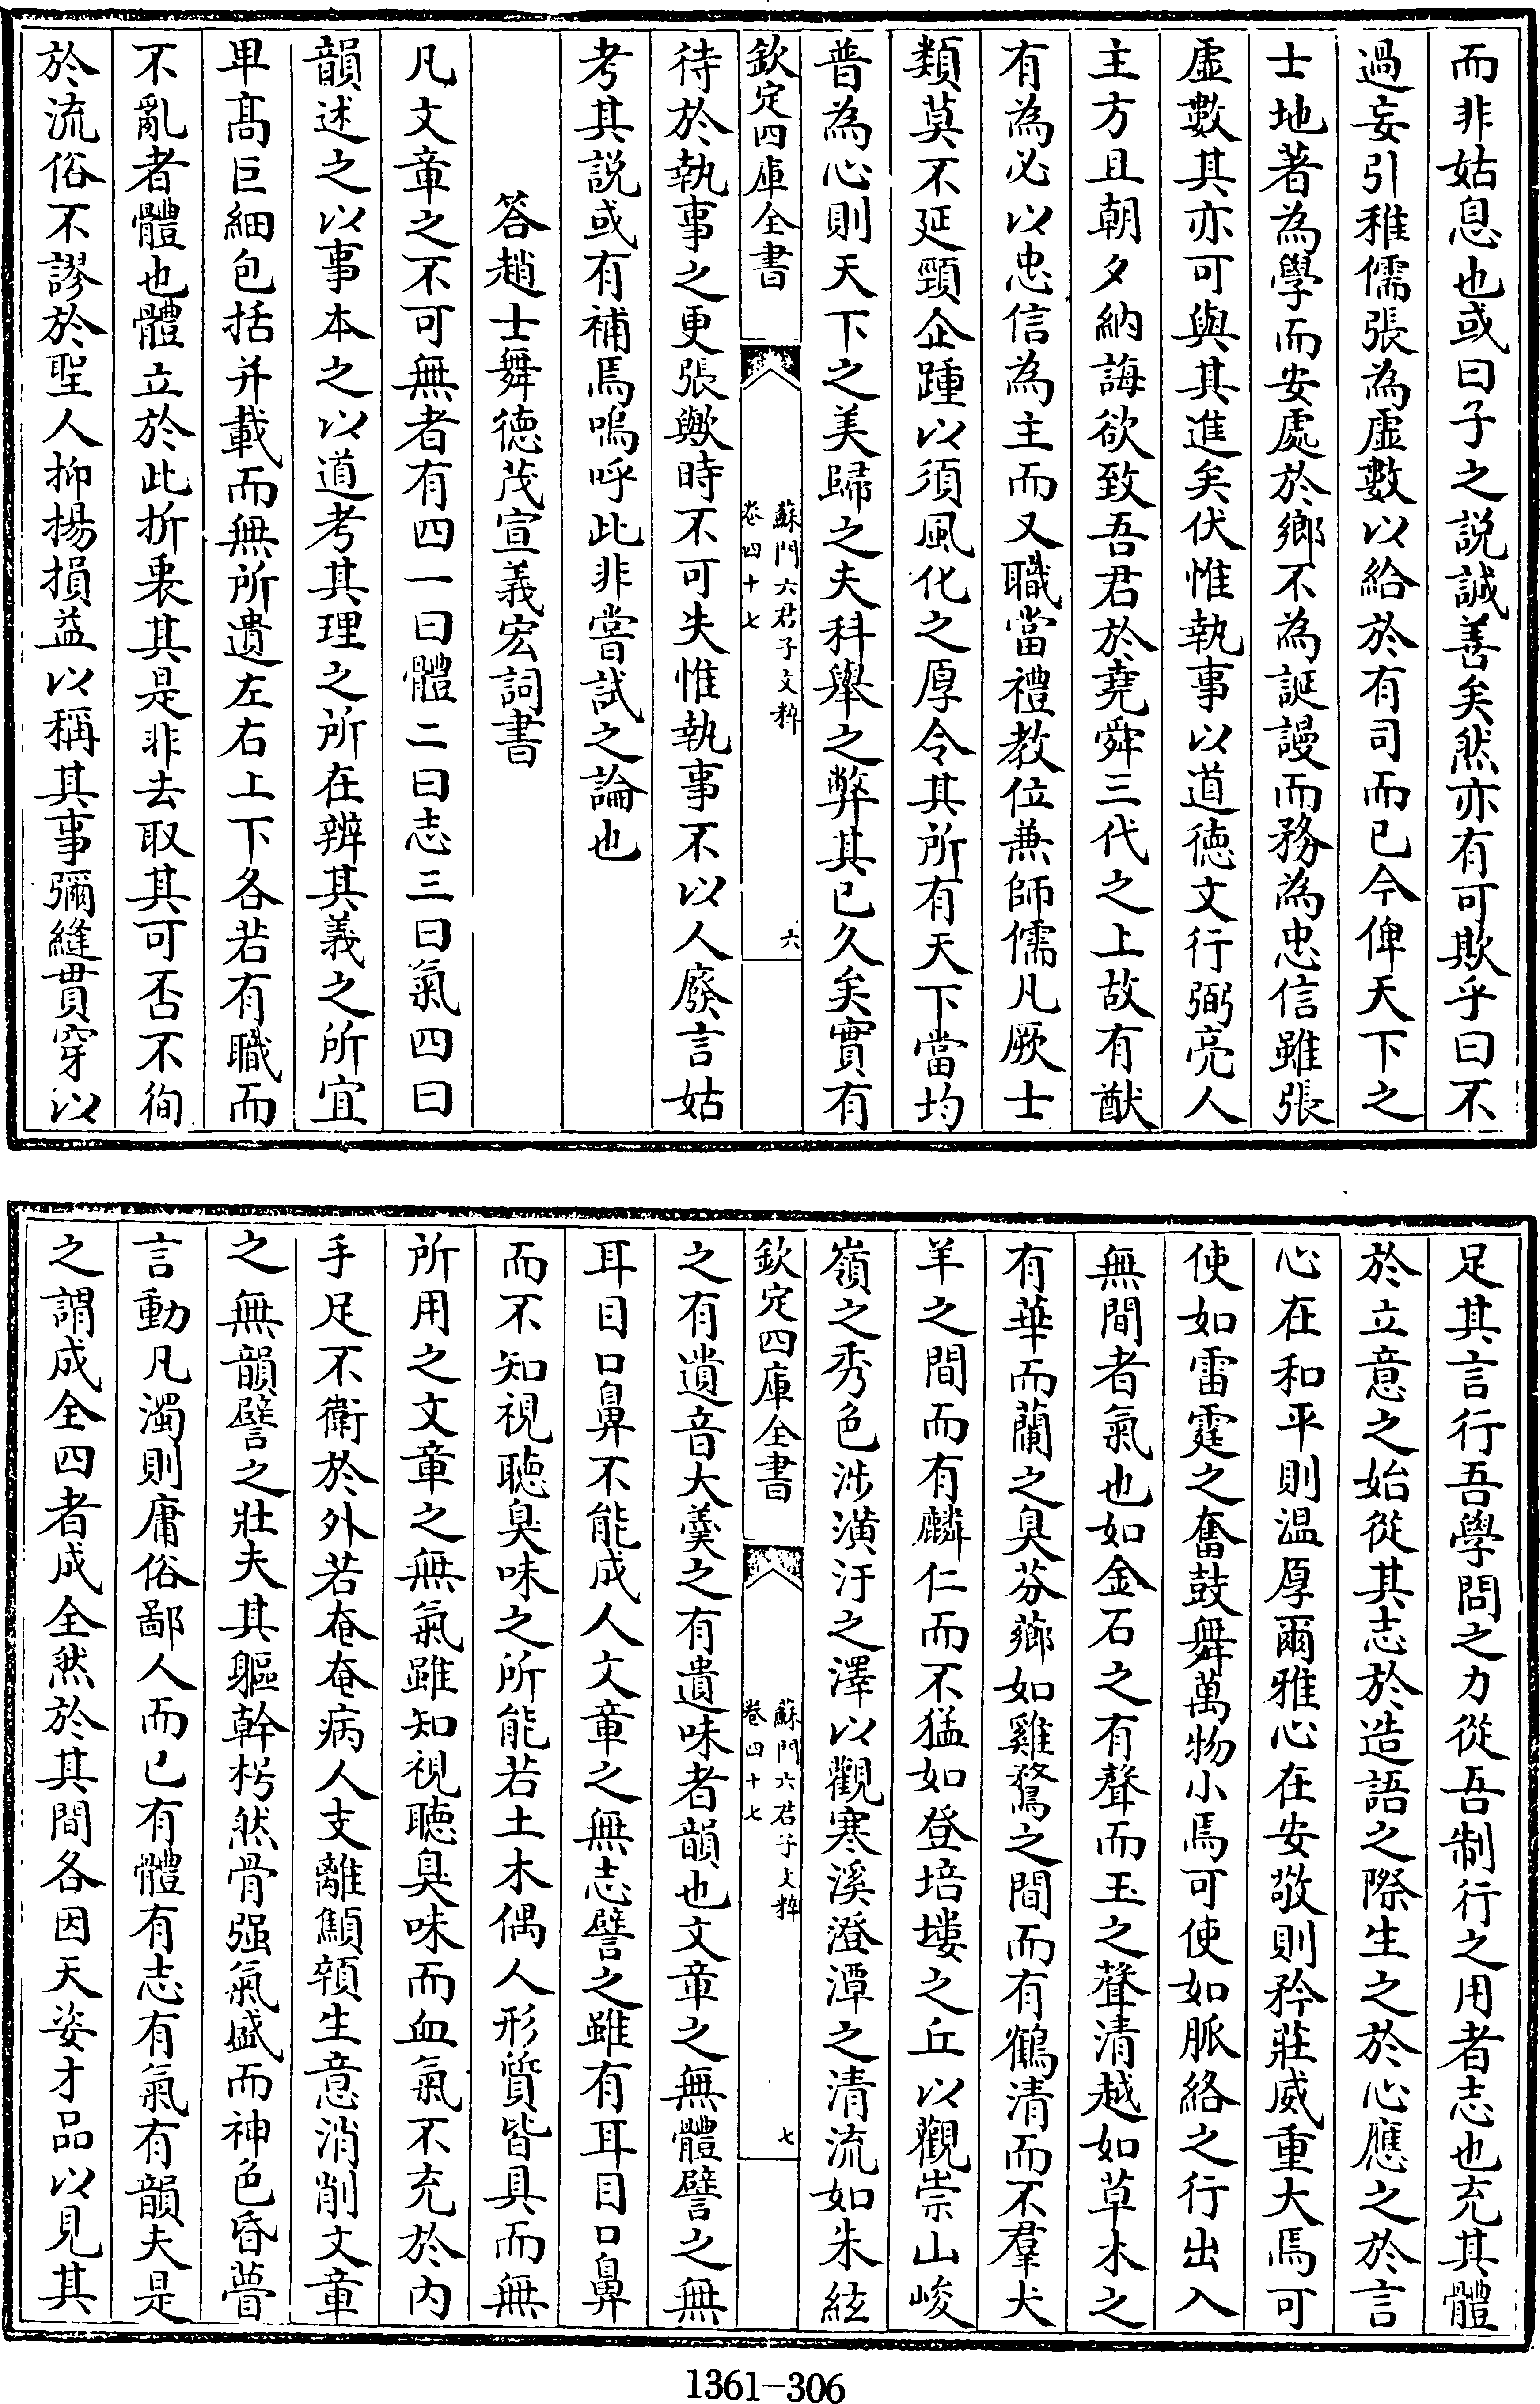 而非姑息也或曰子之説誠善矣然亦有可欺乎曰不
過妄引稚儒張為虛數以給於有司而已今俾天下之
士地著為學而安處於鄉不為誕謾而務為忠信雖張
虛數其亦可與其進矣伏惟執事以道徳文行弼亮人
主方且朝夕納誨欲致吾君於堯舜三代之上故有猷
有為必以忠信為主而又職當禮教位兼師儒凡厥士
類莫不延頸企踵以須風化之厚令其所有天下當均
普為心則天下之美歸之夫科舉之弊其已久矣實有
欽定四庫全書
蘇門六君子文粹
卷四十七
六
待於執事之更張歟時不可失惟執事不以人廢言姑
考其説或有補焉嗚呼此非嘗試之論也
答趙士舞徳茂宣義宏詞書
凡文章之不可無者有四一曰體二曰志三曰氣四曰
韻述之以事本之以道考其理之所在辨其義之所宜
卑髙巨細包括并載而無所遺左右上下各若有職而
不亂者體也體立於此折衷其是非去取其可否不徇
於流俗不謬於聖人抑揚損益以稱其事彌縫貫穿以
足其言行吾學問之力從吾制行之用者志也充其體
於立意之始從其志於造語之際生之於心應之於言
心在和平則温厚爾雅心在安敬則矜莊威重大焉可
使如雷霆之奮鼓舞萬物小焉可使如脈絡之行出入
無間者氣也如金石之有聲而玉之聲清越如草木之
有華而蘭之臭芬薌如雞鶩之間而有鶴清而不羣犬
羊之間而有麟仁而不猛如登培塿之丘以觀崇山峻
嶺之秀色涉潢汙之澤以觀寒溪澄潭之清流如朱絃
欽定四庫全書
蘇門六君子文粹
卷四十七
七
之有遺音大羹之有遺味者韻也文章之無體譬之無
耳目口鼻不能成人文章之無志譬之雖有耳目口鼻
而不知視聽臭味之所能若土木偶人形質皆具而無
所用之文章之無氣雖知視聽臭味而血氣不充於内
手足不衛於外若奄奄病人支離顦顇生意消削文章
之無韻譬之壯夫其軀幹枵然骨强氣盛而神色昏瞢
言動凡濁則庸俗鄙人而已有體有志有氣有韻夫是
之謂成全四者成全然於其間各因天姿才品以見其
1361-306